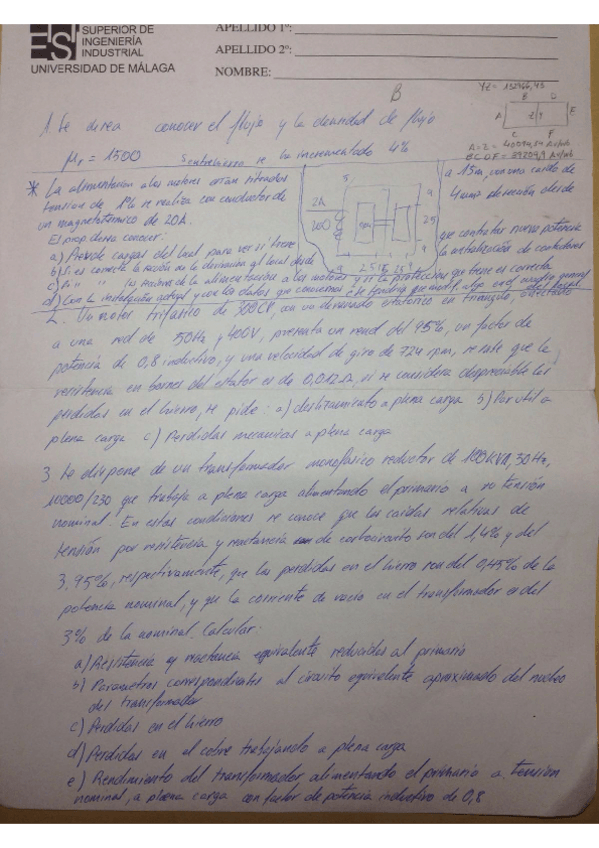 SUPERIOR DE
INGENIERÍA
INDUSTRIAL
UNIVERSIDAD DE MÁLAGA
APELLIDO 1º:
APELLIDO 2º:
NOMBRE:
B
1. Se desea conocer el flujo y la densidad de flujo
μr = 1500 S entrehierro se ha incrementado 4%
* La alimentación a los motores están situados a 15m, con una caída de
tensión de 1% se realiza con conductor de 4mm² de sección desde
un magnetotérmico de 20A.
El prop desea conocer:
a) Prev de cargas del local para ver si tiene que contratar nueva potencia
b) Si es correcta la sección de la derivación al local desde la centralización de contadores
c) " " " la sección de la alimentación a los motores y si la protección que tiene es correcta
d) Con la instalación actual y con los datos que conocemos se tendría que modif. algo en el cuadro general del local
2. Un motor trifásico de 300CV, con un devanado estatórico en triángulo, conectado
a una red de 50Hz y 400V, presenta un rend del 95%, un factor de
potencia de 0,8 inductivo, y una velocidad de giro de 724 rpm, se sabe que la
resistencia en bornes del estator es de 0,012Ω, si se considera despreciable las
perdidas en el hierro, se pide: a) deslizamiento a plena carga b) Par util a
plena carga c) Perdidas mecanicas a plena carga
3. Se dispone de un transformador monofasico reductor de 100KVA, 50Hz,
10000/230 que trabaja a plena carga alimentando el primario a su tensión
nominal. En estas condiciones se conoce que las caidas relativas de
tensión por resistencia y reactancia de cortocircuito son del 1,4% y del
3,95%, respectivamente, que las perdidas en el hierro son del 0,45% de la
potencia nominal, y que la corriente de vacio en el transformador es del
3% de la nominal. Calcular:
a) Resistencia y reactancia equivalente reducidas al primario
b) Parametros correspondientes al circuito equivalente aproximado del nucleo
del transformador
c) Perdidas en el hierro
d) Perdidas en el cobre trabajando a plena carga
e) Rendimiento del transformador alimentando el primario a tension
nominal, a plena carga con factor de potencia inductivo de 0,8